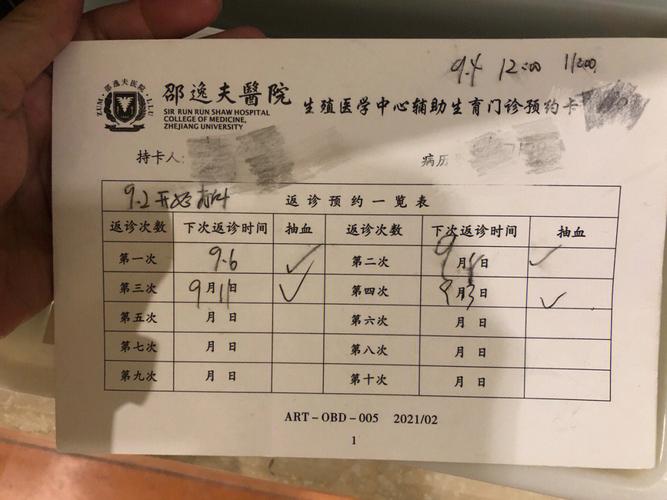 9.4 12:00 11:00
邵逸夫醫院 生殖医学中心辅助生育门诊预约卡
SIR RUN RUN SHAW HOSPITAL
COLLEGE OF MEDICINE,
ZHEJIANG UNIVERSITY
持卡人: 病历
9.2开始 返诊预约一览表
返诊次数 下次返诊时间 抽血 返诊次数 下次返诊时间 抽血
第一次 9.6 ✓ 第二次 9月日 ✓
第三次 9月11日 ✓ 第四次 9月3日 ✓
第五次 月 日 第六次 月 日
第七次 月 日 第八次 月 日
第九次 月 日 第十次 月 日
ART-OBD-005 2021/02
1